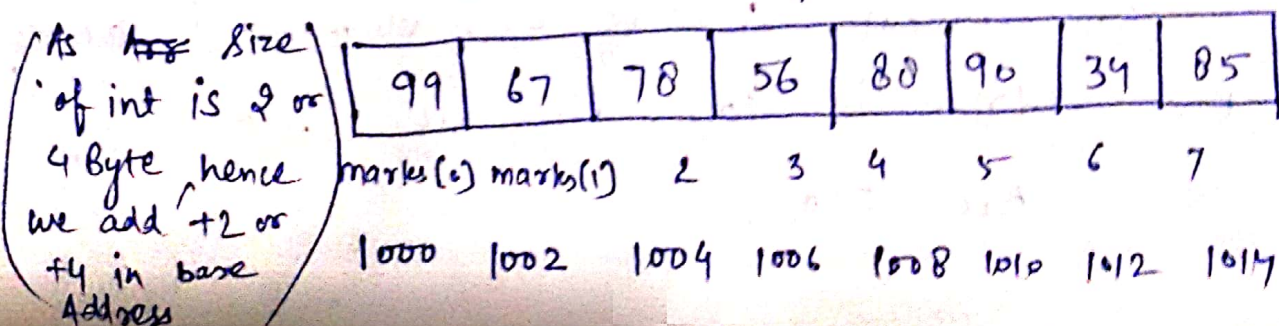 (As size
of int is 2 or
4 Byte, hence
we add +2 or
+4 in base
Address)
99 67 78 56 80 90 34 85
marks(0) marks(1) 2 3 4 5 6 7
1000 1002 1004 1006 1008 1010 1012 1014